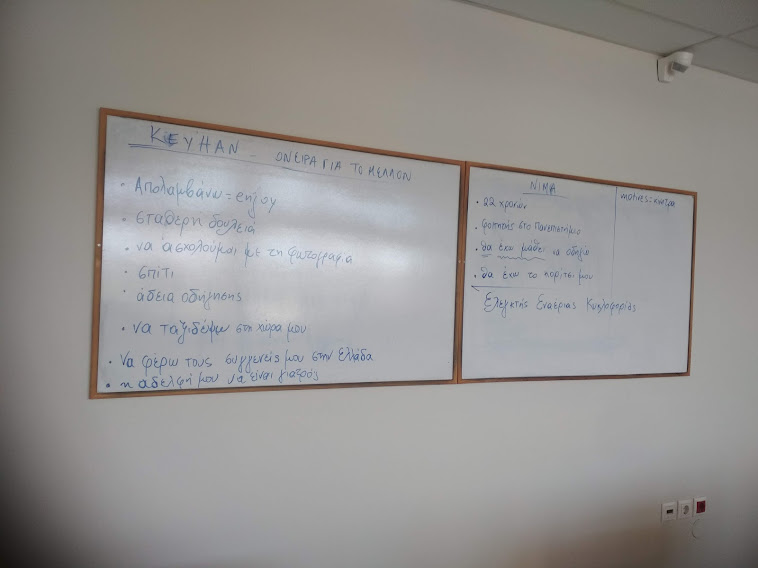 KEYHAN - ΟΝΕΙΡΑ ΓΙΑ ΤΟ ΜΕΛΛΟΝ
• Απολαμβάνω = enjoy
• σταθερή δουλειά
• να ασχολούμαι με τη φωτογραφία
• σπίτι
• άδεια οδήγησης
• να ταξιδέψω στη χώρα μου
• να φέρω τους συγγενείς μου στην Ελλάδα
• η αδελφή μου να είναι γιατρός
ΝΙΜΑ
• 22 χρονών
• φοιτητής στο Πανεπιστήμιο
• θα έχω μάθει να οδηγώ
• θα έχω το κορίτσι μου
Ελεγκτής Εναέριας Κυκλοφορίας
motives = κίνητρα